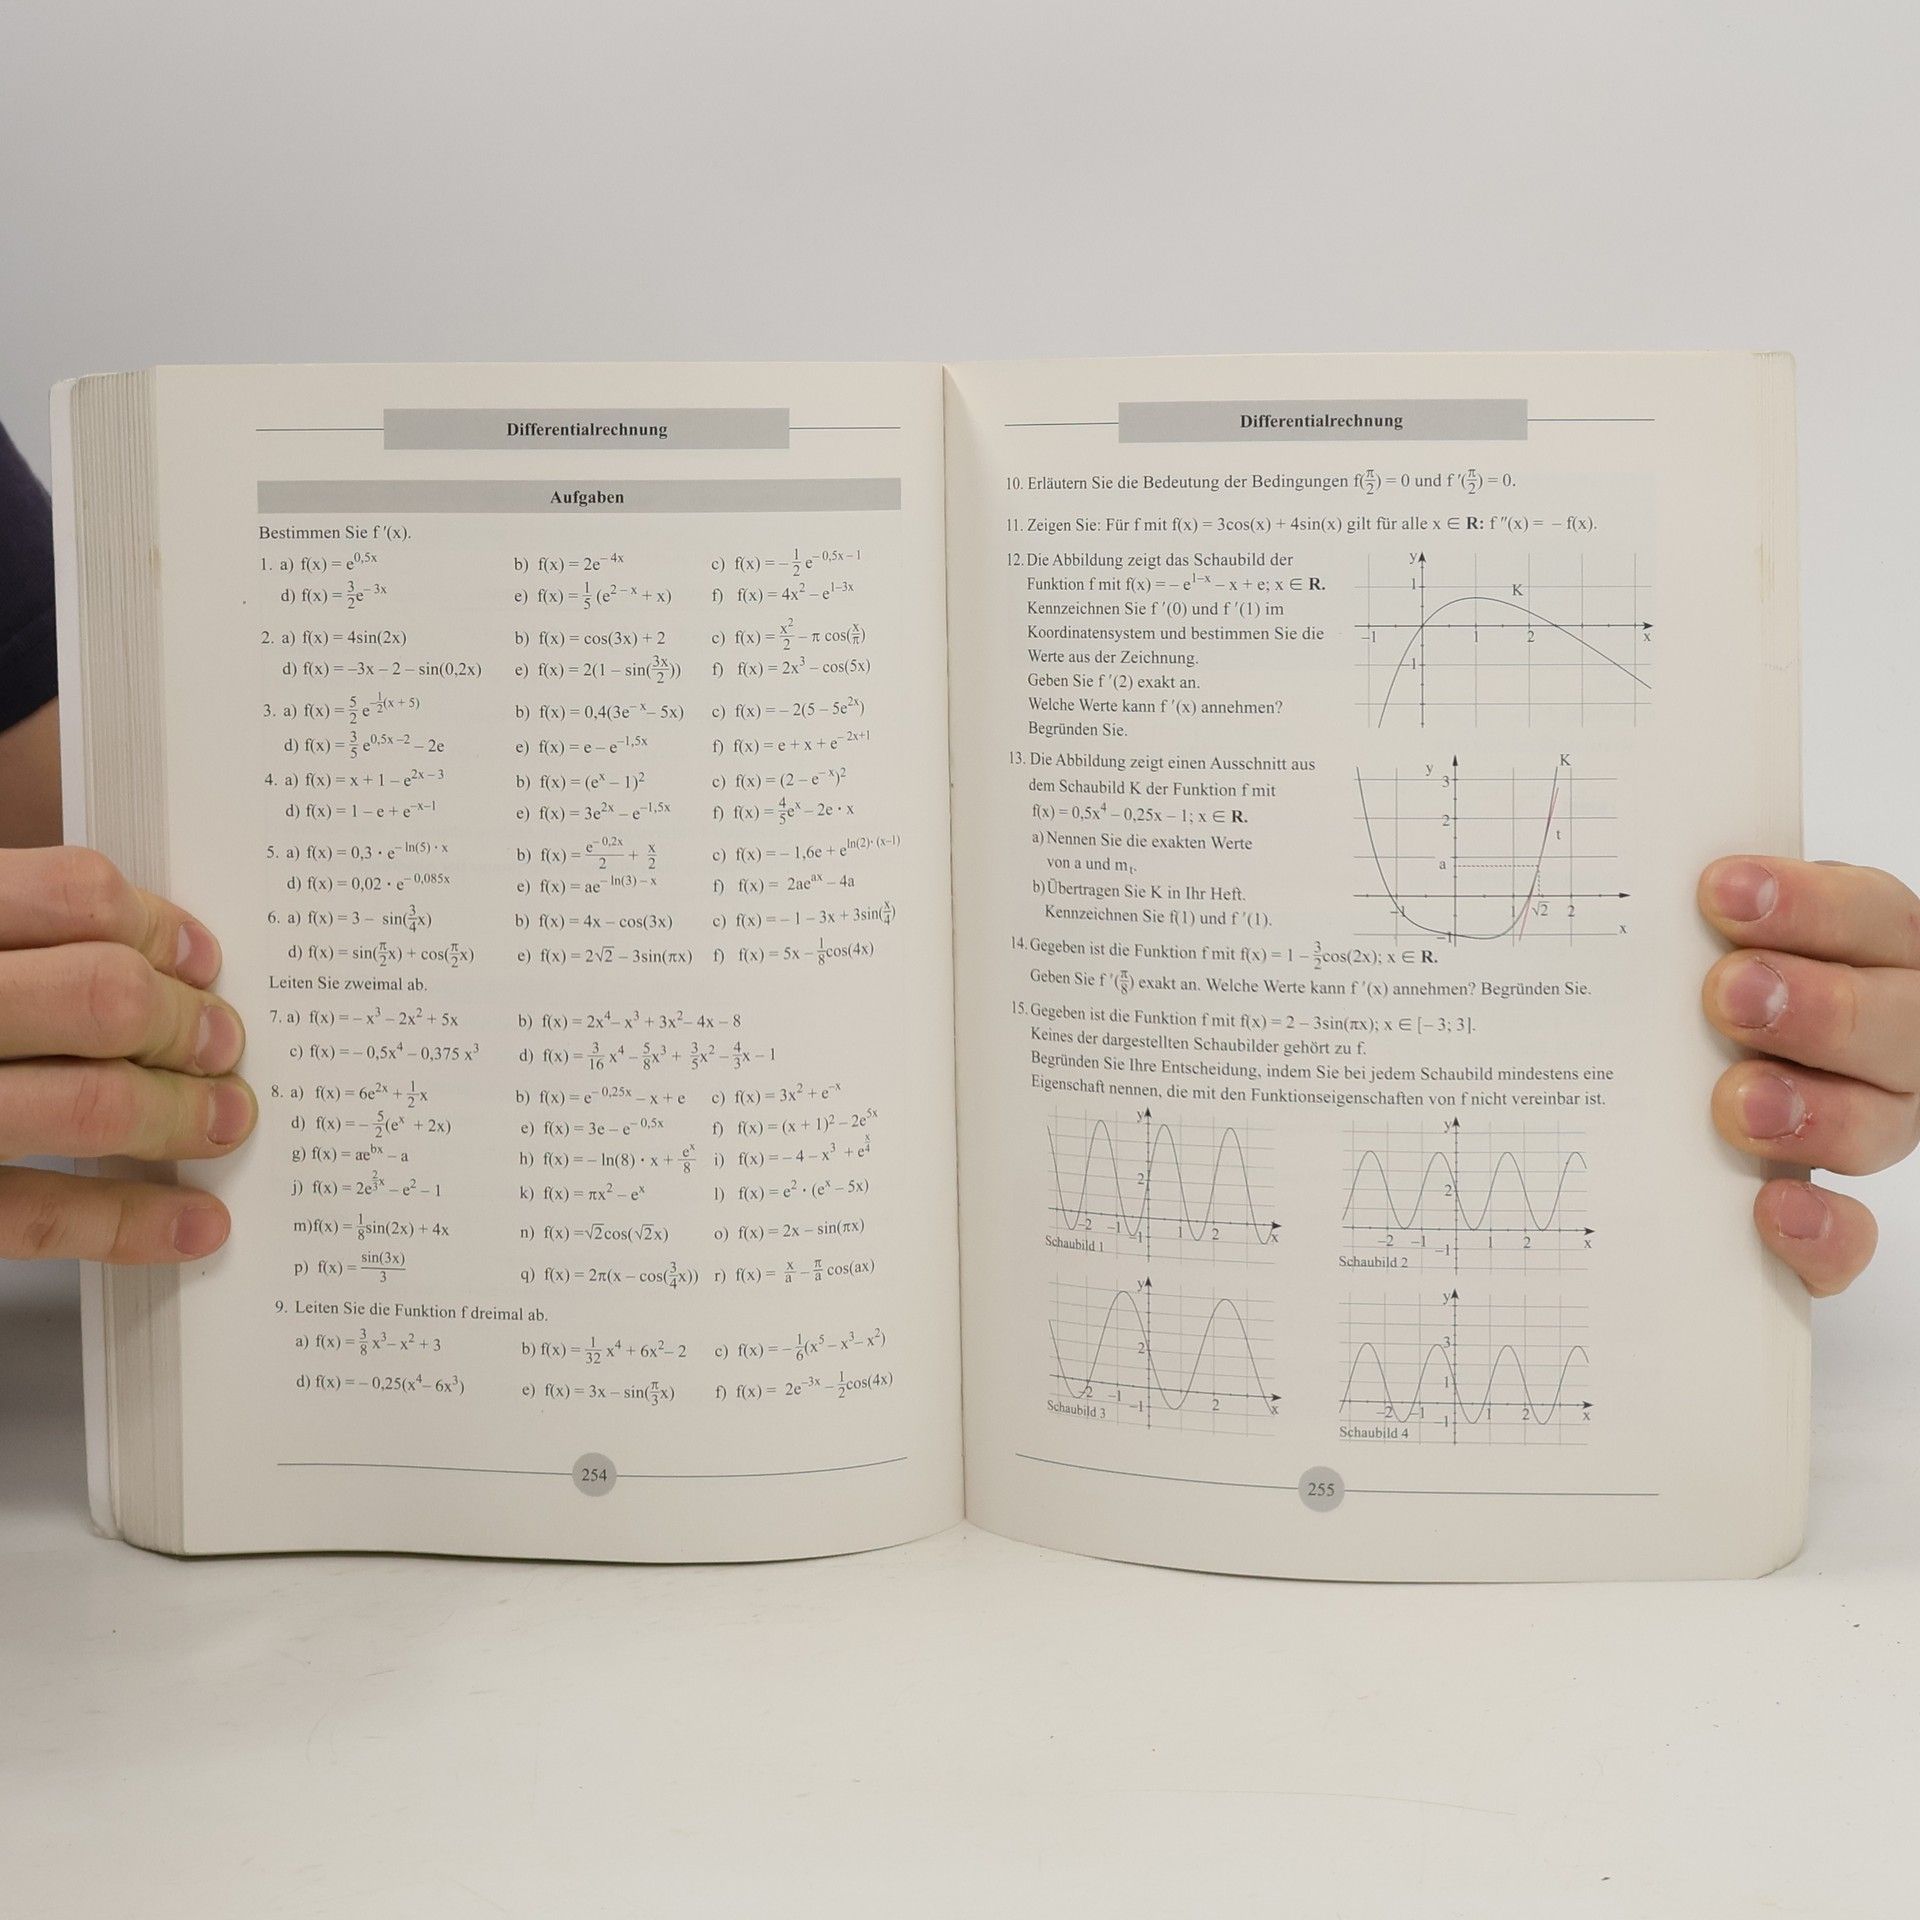 Differentialrechnung
Aufgaben
Bestimmen Sie f ′(x).
1. a) f(x) = e^{0,5x} b) f(x) = 2e^{– 4x} c) f(x) = – \frac{1}{2} e^{– 0,5x – 1}
d) f(x) = \frac{3}{2}e^{– 3x} e) f(x) = \frac{1}{5} (e^{2 – x} + x) f) f(x) = 4x² – e^{1–3x}
2. a) f(x) = 4sin(2x) b) f(x) = cos(3x) + 2 c) f(x) = \frac{x²}{2} – π cos(\frac{x}{π})
d) f(x) = –3x – 2 – sin(0,2x) e) f(x) = 2(1 – sin(\frac{3x}{2})) f) f(x) = 2x³ – cos(5x)
3. a) f(x) = \frac{5}{2} e^{–\frac{1}{2}(x + 5)} b) f(x) = 0,4(3e^{– x} – 5x) c) f(x) = – 2(5 – 5e^{2x})
d) f(x) = \frac{3}{5} e^{0,5x –2} – 2e e) f(x) = e – e^{–1,5x} f) f(x) = e + x + e^{– 2x+1}
4. a) f(x) = x + 1 – e^{2x – 3} b) f(x) = (e^x – 1)² c) f(x) = (2 – e^{– x})²
d) f(x) = 1 – e + e^{–x–1} e) f(x) = 3e^{2x} – e^{–1,5x} f) f(x) = \frac{4}{5}e^x – 2e · x
5. a) f(x) = 0,3 · e^{– ln(5) · x} b) f(x) = \frac{e^{– 0,2x}}{2} + \frac{x}{2} c) f(x) = – 1,6e + e^{ln(2)· (x–1)}
d) f(x) = 0,02 · e^{– 0,085x} e) f(x) = ae^{– ln(3) – x} f) f(x) = 2ae^{ax} – 4a
6. a) f(x) = 3 – sin(\frac{3}{4}x) b) f(x) = 4x – cos(3x) c) f(x) = – 1 – 3x + 3sin(\frac{x}{4})
d) f(x) = sin(\frac{π}{2}x) + cos(\frac{π}{2}x) e) f(x) = 2√2 – 3sin(πx) f) f(x) = 5x – \frac{1}{8}cos(4x)
Leiten Sie zweimal ab.
7. a) f(x) = – x³ – 2x² + 5x b) f(x) = 2x⁴– x³ + 3x²– 4x – 8
c) f(x) = – 0,5x⁴ – 0,375 x³ d) f(x) = \frac{3}{16} x⁴ – \frac{5}{8}x³ + \frac{3}{5}x² – \frac{4}{3}x – 1
8. a) f(x) = 6e^{2x} + \frac{1}{2}x b) f(x) = e^{– 0,25x} – x + e c) f(x) = 3x² + e^{–x}
d) f(x) = – \frac{5}{2}(e^x + 2x) e) f(x) = 3e – e^{– 0,5x} f) f(x) = (x + 1)² – 2e^{5x}
g) f(x) = ae^{bx} – a h) f(x) = – ln(8) · x + \frac{e^x}{8} i) f(x) = – 4 – x³ + e^{\frac{x}{4}}
j) f(x) = 2e^{\frac{2}{3}x} – e² – 1 k) f(x) = πx² – e^x l) f(x) = e² · (e^x – 5x)
m)f(x) = \frac{1}{8}sin(2x) + 4x n) f(x) =√2cos(√2x) o) f(x) = 2x – sin(πx)
p) f(x) = \frac{sin(3x)}{3} q) f(x) = 2π(x – cos(\frac{3}{4}x)) r) f(x) = \frac{x}{a} – \frac{π}{a} cos(ax)
9. Leiten Sie die Funktion f dreimal ab.
a) f(x) = \frac{3}{8} x³– x² + 3 b) f(x) = \frac{1}{32} x⁴ + 6x²– 2 c) f(x) = – \frac{1}{6}(x⁵ – x³– x²)
d) f(x) = – 0,25(x⁴– 6x³) e) f(x) = 3x – sin(\frac{π}{3}x) f) f(x) = 2e^{–3x} – \frac{1}{2}cos(4x)
254
Differentialrechnung
10. Erläutern Sie die Bedeutung der Bedingungen f(\frac{π}{2}) = 0 und f ′(\frac{π}{2}) = 0.
11. Zeigen Sie: Für f mit f(x) = 3cos(x) + 4sin(x) gilt für alle x ∈ R: f ″(x) = – f(x).
12. Die Abbildung zeigt das Schaubild der
Funktion f mit f(x) = – e^{1–x} – x + e; x ∈ R.
Kennzeichnen Sie f ′(0) und f ′(1) im
Koordinatensystem und bestimmen Sie die
Werte aus der Zeichnung.
Geben Sie f ′(2) exakt an.
Welche Werte kann f ′(x) annehmen?
Begründen Sie.
y
1
K
–1 1 2 x
–1
13. Die Abbildung zeigt einen Ausschnitt aus
dem Schaubild K der Funktion f mit
f(x) = 0,5x⁴ – 0,25x – 1; x ∈ R.
a) Nennen Sie die exakten Werte
von a und m_t.
b) Übertragen Sie K in Ihr Heft.
Kennzeichnen Sie f(1) und f ′(1).
y K
3
2
t
a
–1 1 √2 2 x
–1
14. Gegeben ist die Funktion f mit f(x) = 1 – \frac{3}{2}cos(2x); x ∈ R.
Geben Sie f ′(\frac{π}{8}) exakt an. Welche Werte kann f ′(x) annehmen? Begründen Sie.
15. Gegeben ist die Funktion f mit f(x) = 2 – 3sin(πx); x ∈ [– 3; 3].
Keines der dargestellten Schaubilder gehört zu f.
Begründen Sie Ihre Entscheidung, indem Sie bei jedem Schaubild mindestens eine
Eigenschaft nennen, die mit den Funktionseigenschaften von f nicht vereinbar ist.
y
2
–2 –1 1 2 x
–1
Schaubild 1
y
2
–2 –1 1 2 x
–1
Schaubild 2
y
2
–2 –1 2 x
–1
Schaubild 3
y
3
1
–2 –1 1 2 x
–1
Schaubild 4
255